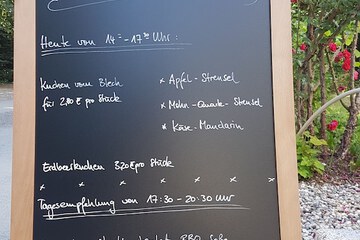 Heute von 14⁰⁰ - 17³⁰ Uhr:
Kuchen vom Blech
für 2,80 € pro Stück
x Apfel-Streusel
x Mohn-Quark-Streusel
x Käse-Mandarin
Erdbeerkuchen 3,20 € pro Stück
x x x x x x x
Tagesempfehlung von 17:30 - 20:30 Uhr
BBQ Soße